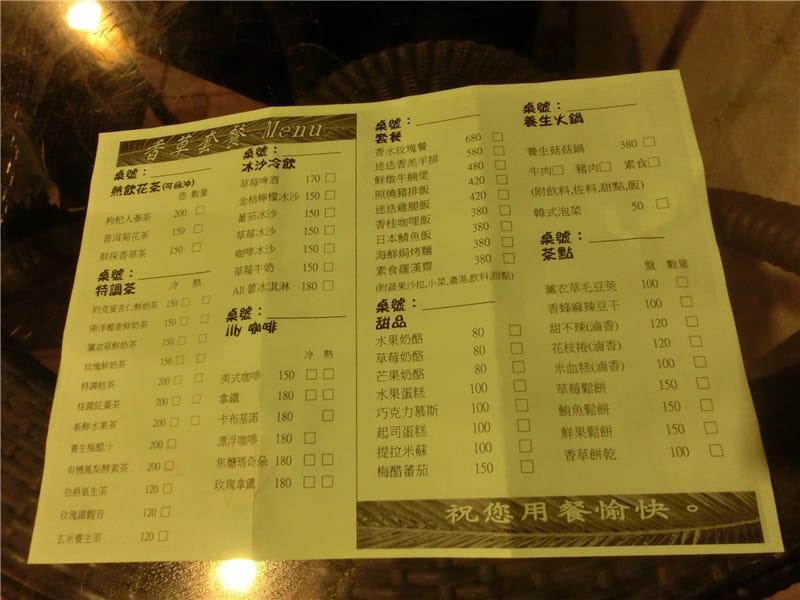 香草套餐 Menu
桌號：
熱飲花茶(可回沖)
壺 數量
枸杞人蔘茶 200 □
普洱菊花茶 150 □
鮮採香草茶 150 □
桌號：
特調茶
冷 熱
約克夏杏仁鮮奶茶 150 □ □
南洋椰香鮮奶茶 150 □ □
薰衣草鮮奶茶 150 □ □
玫瑰鮮奶茶 150 □ □
特調桔茶 200 □ □
桂圓紅棗茶 200 □ □
新鮮水果茶 200 □ □
養生梅醋汁 200 □
有機鳳梨酵素茶 200 □
伯爵氧生茶 120 □
玫瑰鐵觀音 120 □
玄米養生茶 120 □
桌號：
冰沙冷飲
草莓啤酒 170 □
金桔檸檬冰沙 150 □
蕃茄冰沙 150 □
草莓冰沙 150 □
咖啡冰沙 150 □
草莓牛奶 150 □
All 蕾冰淇淋 180 □
桌號：
illy 咖啡
冷 熱
美式咖啡 150 □ □
拿鐵 180 □ □
卡布基諾 180 □
漂浮咖啡 180 □
焦糖瑪奇朵 180 □ □
玫瑰拿鐵 180 □ □
桌號：
套餐
香水玫瑰餐 680 □
迷迭香羔羊排 580 □
鮮燉牛腩煲 480 □
照燒豬排飯 420 □
迷迭雞腿飯 420 □
香桂咖哩飯 380 □
日本鯖魚飯 380 □
海鮮焗烤麵 380 □
素食羅漢齋 380 □
(附蔬果沙拉,小菜,濃湯,飲料,甜點)
桌號：
甜品
水果奶酪 80 □
草莓奶酪 80 □
芒果奶酪 80 □
水果蛋糕 100 □
巧克力慕斯 100 □
起司蛋糕 100 □
提拉米蘇 100 □
梅醋蕃茄 150 □
桌號：
養生火鍋
養生菇菇鍋 380 □
牛肉□ 豬肉□ 素食□
(附飲料,佐料,甜點,飯)
韓式泡菜 50 □
桌號：
茶點
盤 數量
薰衣草毛豆莢 100 □
香蜂麻辣豆干 100 □
甜不辣(滷香) 120 □
花枝捲(滷香) 120 □
米血糕(滷香) 100 □
草莓鬆餅 150 □
鮪魚鬆餅 150 □
鮮果鬆餅 150 □
香草餅乾 100 □
祝您用餐愉快。